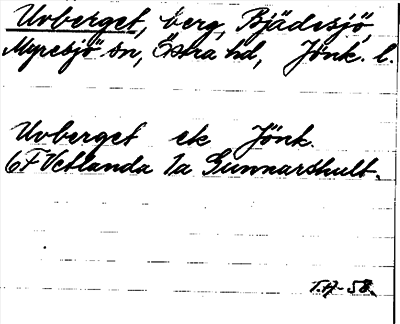 Uvberget, berg, Bjädesjö,
Myresjö sn, Östra hd, Jönk. l.
Uvberget ek Jönk.
6F Vetlanda 1a Gunnarshult.
T.A-58.